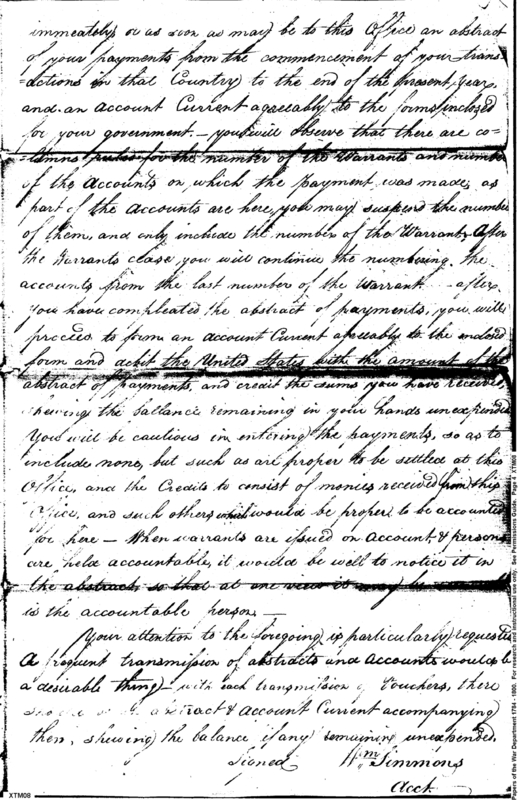 immeately or as soon as may be to this Office an abstract
of your payments from the commencement of your trans-
=actions in that Country to the end of the present year,
and an account Current agreeably to the forms inclosed
for your government. — you will observe that there are co-
=lumns ruled for the number of the Warrants and number
of the accounts on which the payment was made, as
part of the accounts are here, you may suspend the number
of them, and only include the number of the Warrants, After
the Warrants close, you will continue the numbering the
accounts from the last number of the Warrant - after
you have compleated the abstract of payments, you will
proceed to form an account Current agreeably to the enclosed
form and debit the United States with the amount of the
abstract of payments, and credit the sums you have received,
shewing the ballance remaining in your hands unexpended
You will be cautious in entering the payments, so as to
include none, but such as are proper to be settled at this
Office, and the Credits to consist of monies received from this
Office, and such others which would be proper to be accounted
for here — When warrants are issued on account & persons
are held accountable, it would be well to notice it in
the abstract, so that at one view it may be
is the accountable person. —
Your attention to the foregoing is particularly requested
A frequent transmission of abstracts and accounts would be
a desirable thing — with each transmission of Vouchers, there
abstract & account Current accompanying
them, shewing the balance if any remaining unexpended.
Signed Wm Simmons
Acct
XTM08
Papers of the War Department 1784 - 1800. For research and instructional use only. See Permissions Guide. Page 4 XTM08